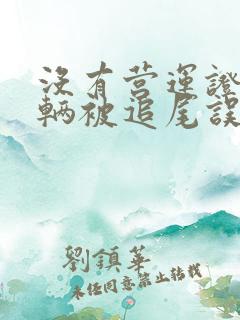 没有营運證
輛被追尾誤
劉鎮華
未经同意禁止转载